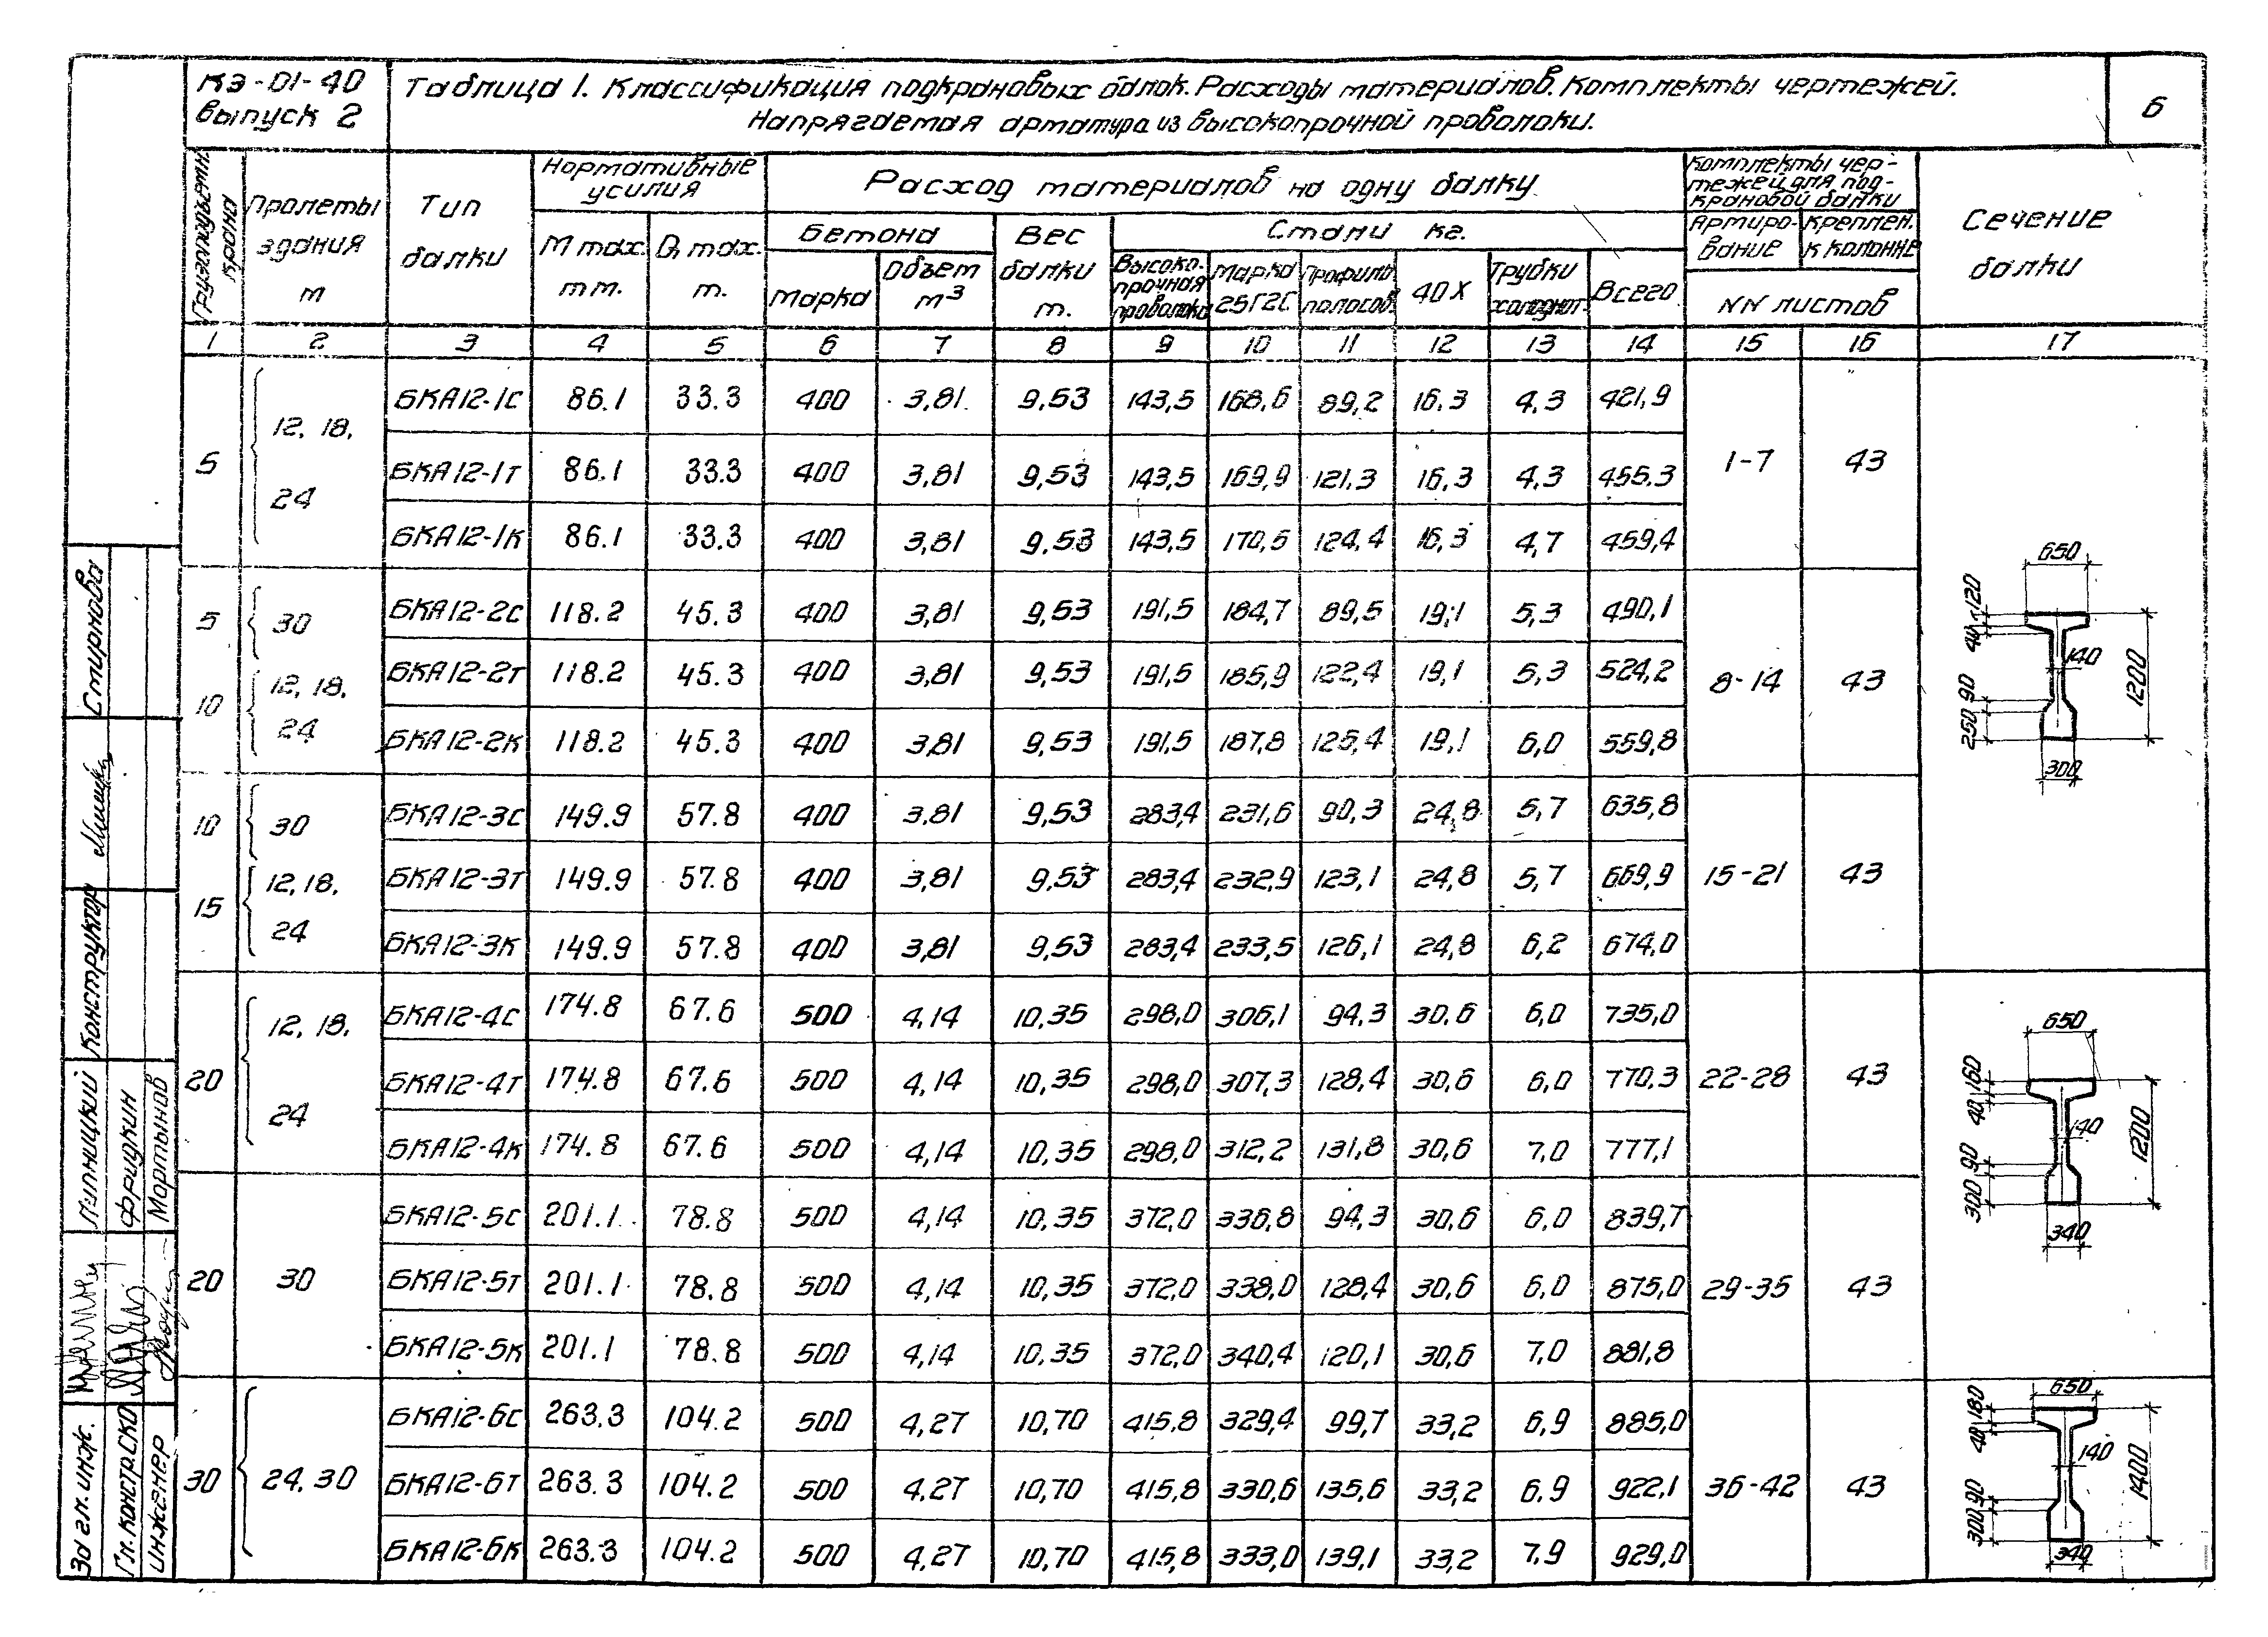 КЭ-01-40
выпуск 2
Таблица 1. Классификация подкрановых балок. Расходы материалов. Комплекты чертежей.
Напрягаемая арматура из высокопрочной проволоки.
6
Грузоподъемн. крана
Пролеты здания м
Тип балки
Нормативные усилия
M max. тм.
Q max. т.
Расход материалов на одну балку
Бетона
Марка
Объем м3
Вес балки т.
Стали кг.
Высокопрочная проволока
Марка 25Г2С
Профильн полосов.
40Х
Трубки
Всего
Комплекты чер-
тежей для под-
крановой балки
Армиро-
вание
Креплен.
к колонне
NN листов
Сечение балки
1 2 3 4 5 6 7 8 9 10 11 12 13 14 15 16 17
5 12, 18, 24
БКА12-1С 86.1 33.3 400 3,81 9,53 143,5 168,6 89,2 16,3 4,3 421,9
БКА12-1Т 86.1 33.3 400 3,81 9,53 143,5 169,9 121,3 16,3 4,3 455,3 1-7 43
БКА12-1К 86.1 33.3 400 3,81 9,53 143,5 170,5 124,4 16,3 4,7 459,4
5 30
10 12, 18, 24
БКА12-2С 118.2 45.3 400 3,81 9,53 191,5 184,7 89,5 19,1 5,3 490,1
БКА12-2Т 118.2 45.3 400 3,81 9,53 191,5 185,9 122,4 19,1 5,3 524,2 8-14 43
БКА12-2К 118.2 45.3 400 3,81 9,53 191,5 187,8 125,4 19,1 6,0 559,8
10 30
15 12, 18, 24
БКА12-3С 149.9 57.8 400 3,81 9,53 283,4 231,6 90,3 24,8 5,7 635,8
БКА12-3Т 149.9 57.8 400 3,81 9,53 283,4 232,9 123,1 24,8 5,7 669,9 15-21 43
БКА12-3К 149.9 57.8 400 3,81 9,53 283,4 233,5 126,1 24,8 6,2 674,0
20 12, 18, 24
БКА12-4С 174.8 67.6 500 4,14 10,35 298,0 306,1 94,3 30,6 6,0 735,0
БКА12-4Т 174.8 67.6 500 4,14 10,35 298,0 307,3 128,4 30,6 6,0 770,3 22-28 43
БКА12-4К 174.8 67.6 500 4,14 10,35 298,0 312,2 131,8 30,6 7,0 777,1
20 30
БКА12-5С 201.1 78.8 500 4,14 10,35 372,0 336,8 94,3 30,6 6,0 839,7
БКА12-5Т 201.1 78.8 500 4,14 10,35 372,0 338,0 128,4 30,6 6,0 875,0 29-35 43
БКА12-5К 201.1 78.8 500 4,14 10,35 372,0 340,4 120,1 30,6 7,0 881,8
30 24, 30
БКА12-6С 263.3 104.2 500 4,27 10,70 415,8 329,4 99,7 33,2 6,9 885,0
БКА12-6Т 263.3 104.2 500 4,27 10,70 415,8 330,6 135,6 33,2 6,9 922,1 36-42 43
БКА12-6К 263.3 104.2 500 4,27 10,70 415,8 333,0 139,1 33,2 7,9 929,0
650
120
40
140
90
250
1200
300
650
160
40
140
90
300
1200
340
650
180
40
140
90
300
1400
340
Зд гл. инж.
Гл. констр. СКО
Инженер
Пильницкий
Фридкин
Мартынов
Конструктор
Смирнова